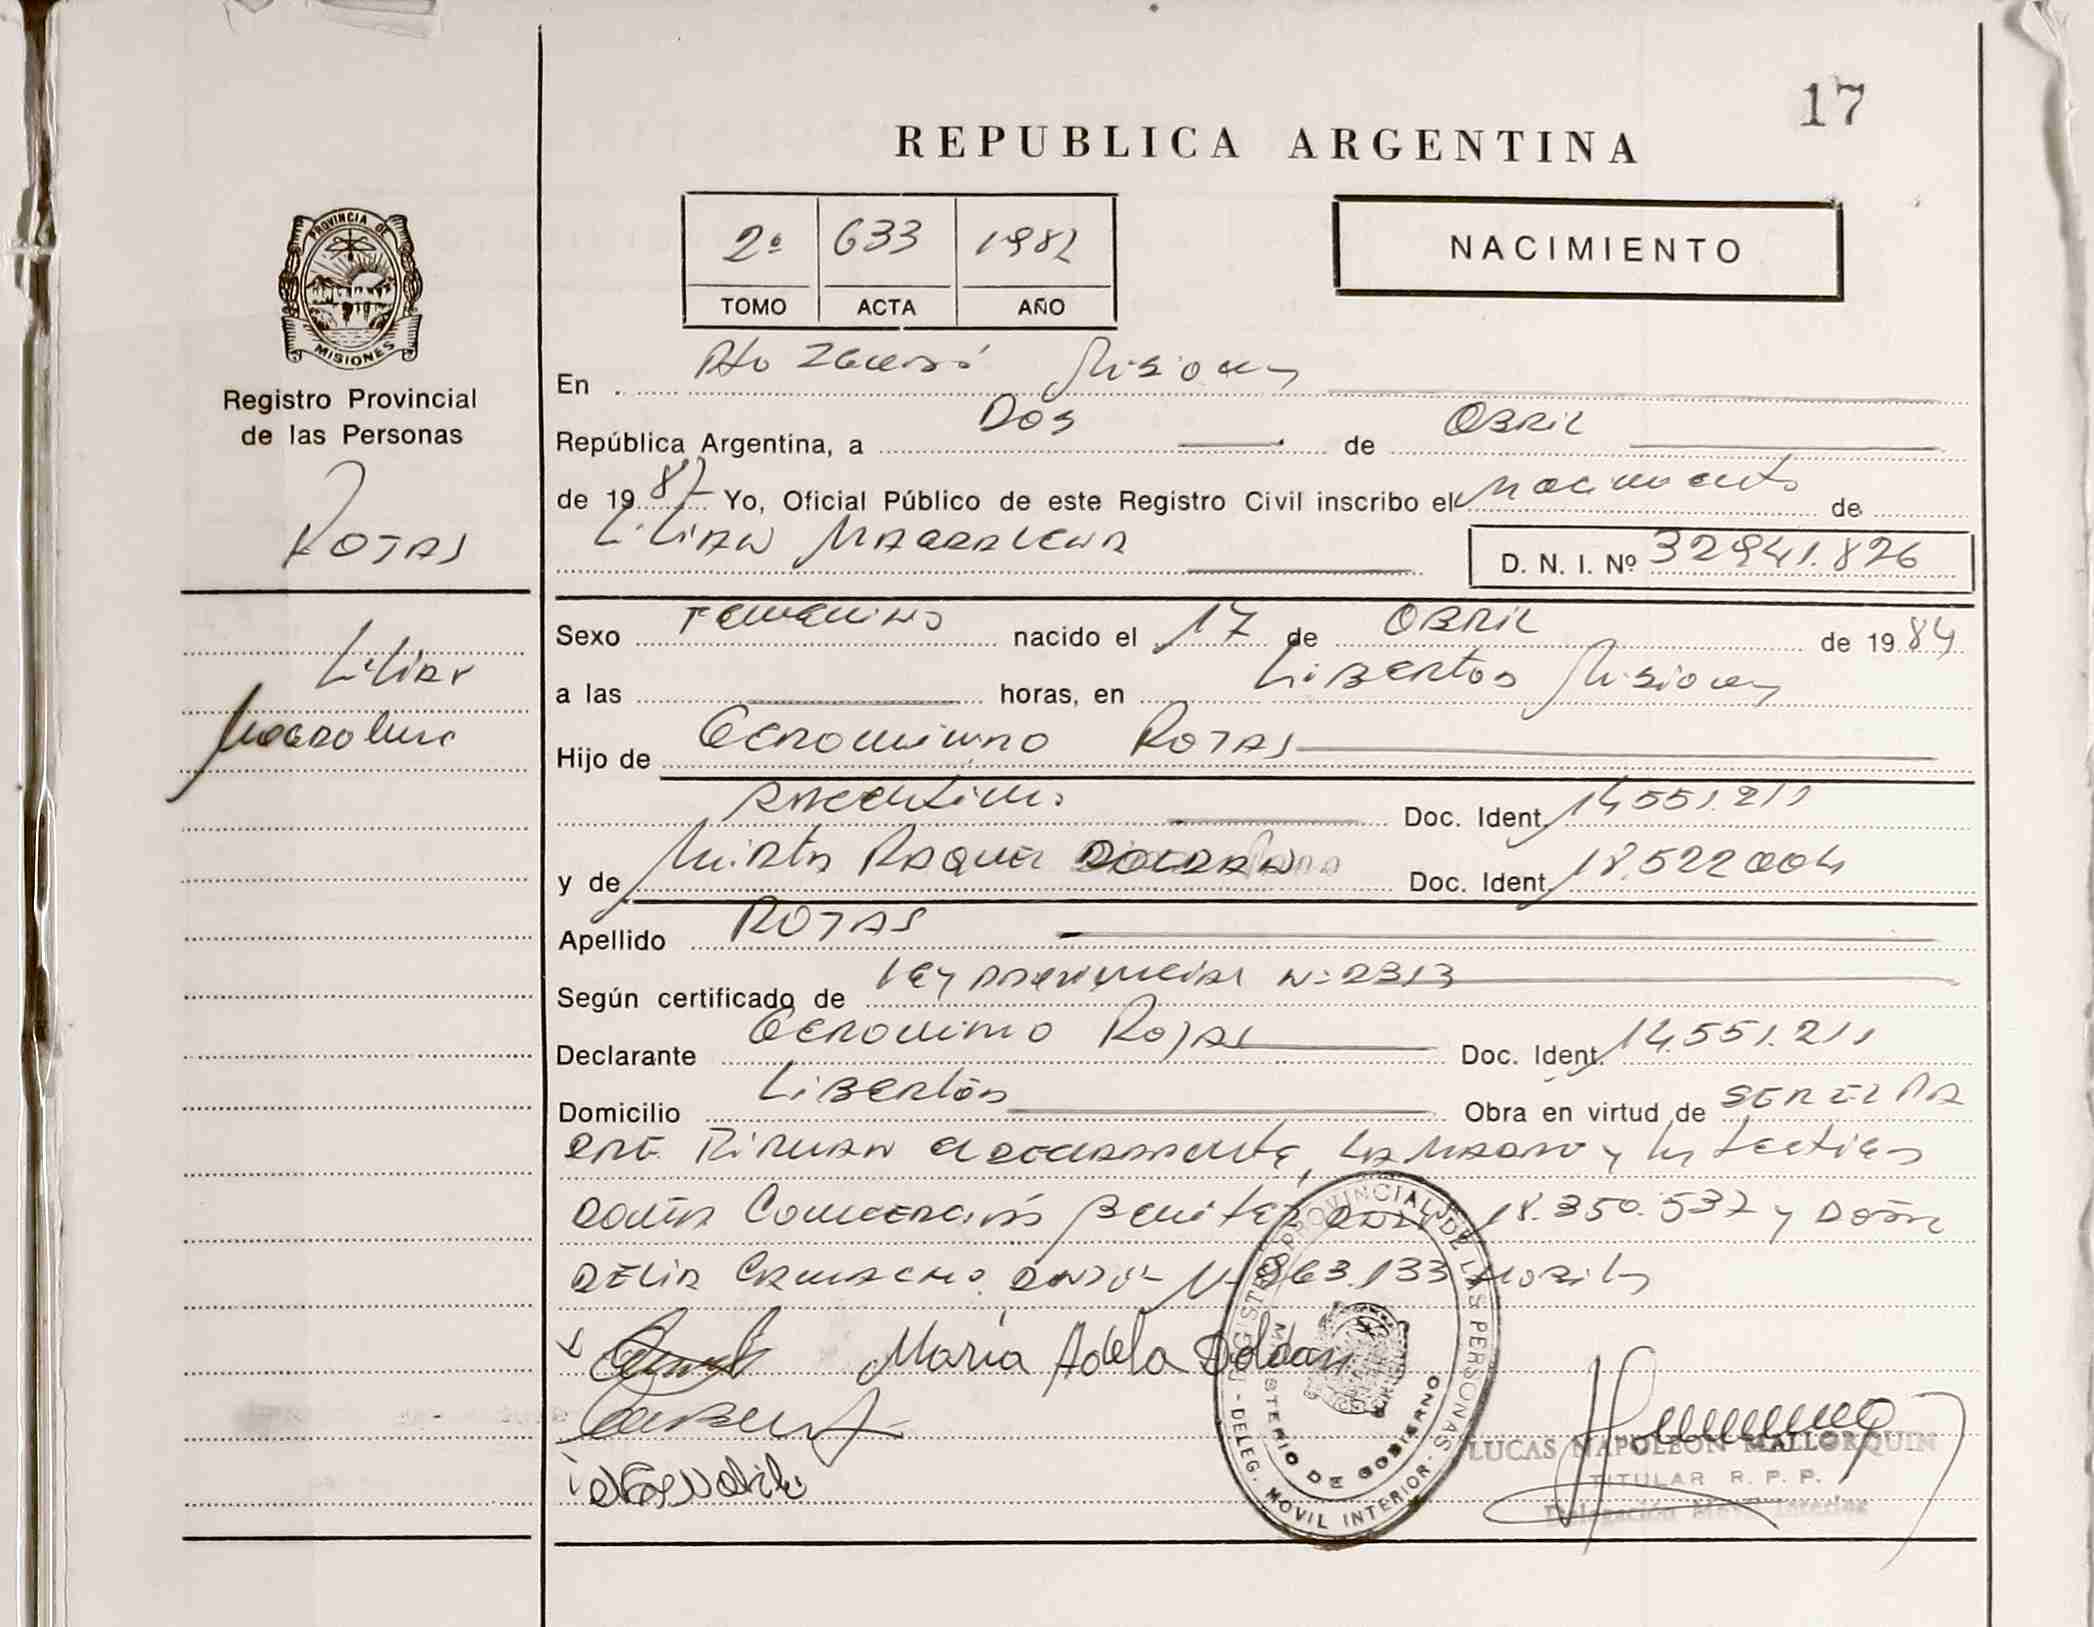 17
REPUBLICA ARGENTINA
2º 633 1982
TOMO ACTA AÑO
NACIMIENTO
PROVINCIA DE MISIONES
Registro Provincial
de las Personas
ROJAS
Lilian
Magdalena
En Misiones
República Argentina, a Dos de Abril
de 1987 Yo, Oficial Público de este Registro Civil inscribo el Nacimiento de
Lilian Magdalena D. N. I. Nº 32941.826
Sexo Femenino nacido el 17 de Abril de 1984
a las horas, en Libertad Misiones
Hijo de Geronimo Rojas
Argentino Doc. Ident. 14.551.211
y de Mirta Raquel Doldan Doc. Ident. 18.522.004
Apellido ROJAS
Según certificado de Ley Provincial Nº 2313
Declarante Geronimo Rojas Doc. Ident. 14.551.211
Domicilio Libertad Obra en virtud de
Firman el declarante, la madre y los testigos
Doña Benitez 18.350.537 y Doña
Delia 133
María Adela Doldan
REGISTRO PROVINCIAL DE LAS PERSONAS
- DELEG. MOVIL INTERIOR -
MINISTERIO DE GOBIERNO
LUCAS NAPOLEON MALLORQUIN
TITULAR R. P. P.
Delegación Movil Interior